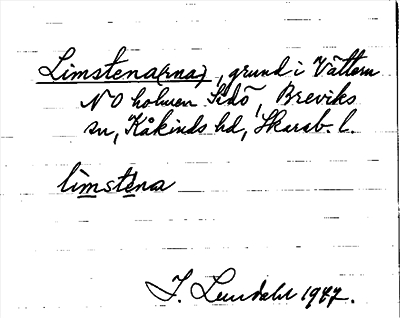 Limstena(rna), grund i Vättern
NO holmen Sidö, Breviks
sn, Kåkinds hd, Skarab. l.
limstena
J. Lundahl 1947.